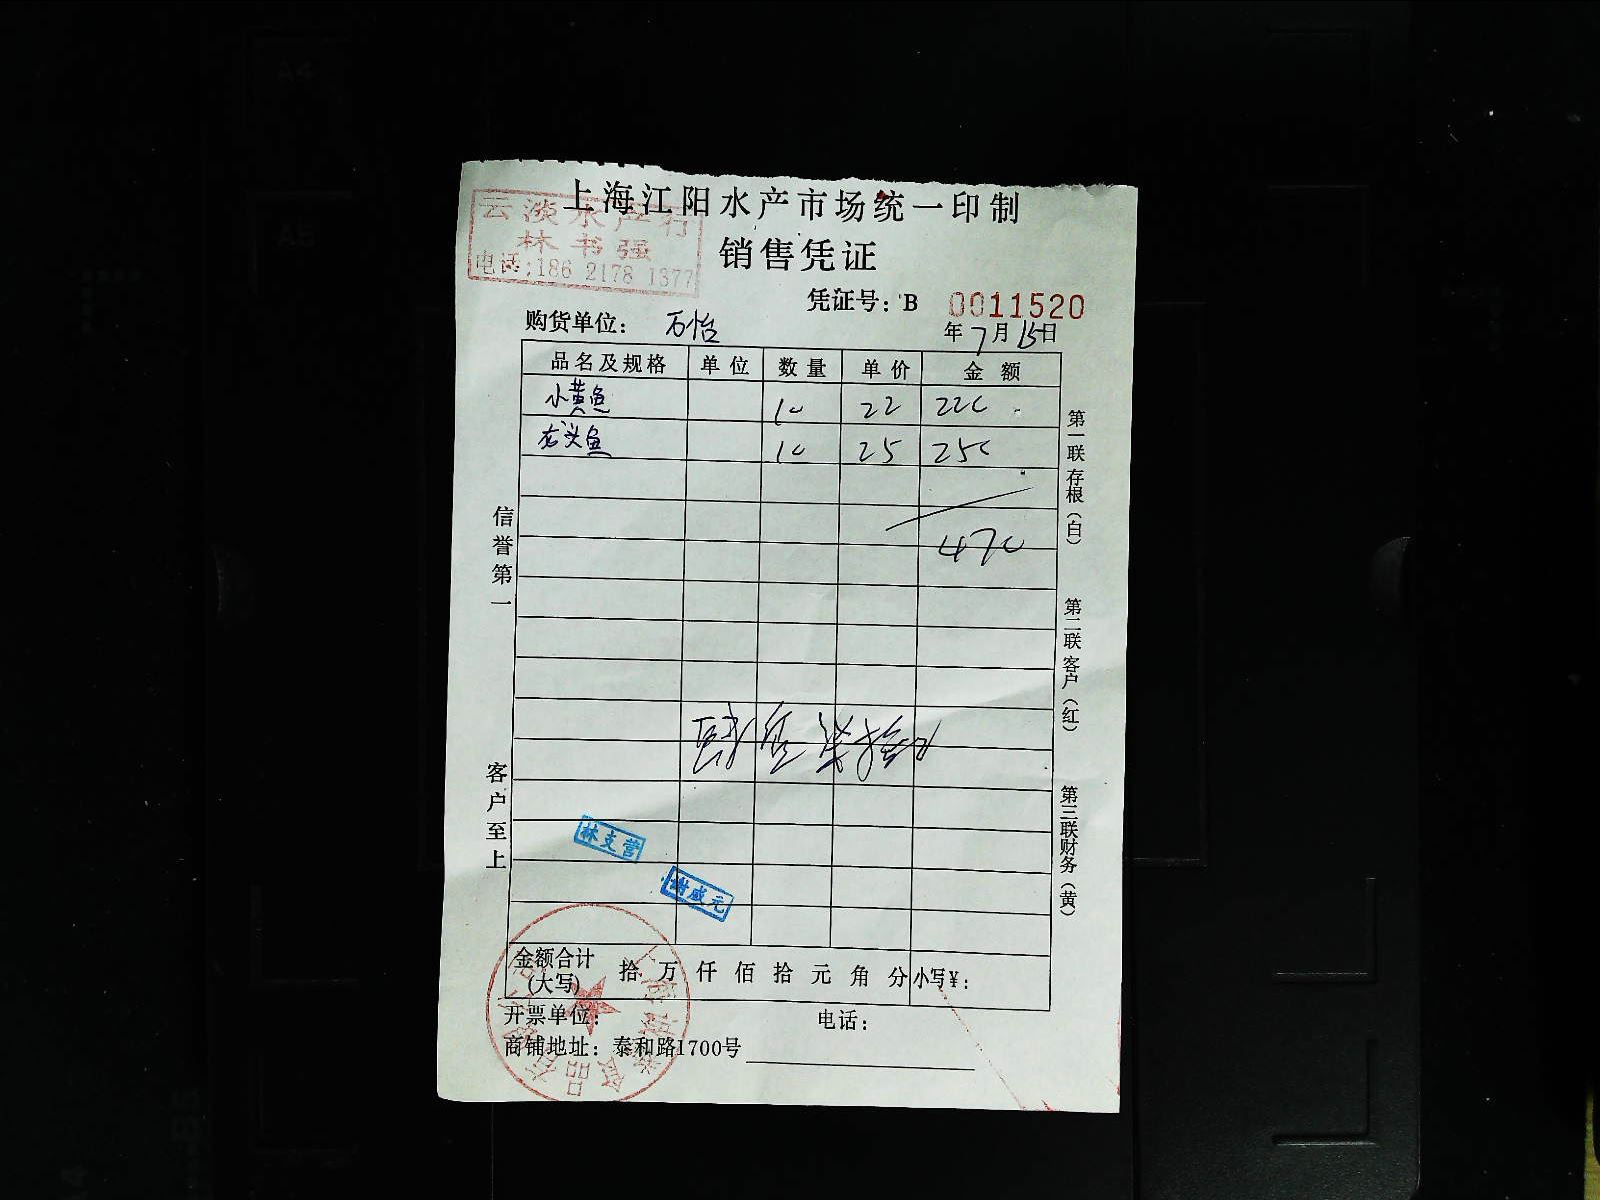 上海江阳水产市场统一印制
云淡水产行
林书强
电话:186 2178 1377
销售凭证
凭证号：B 0011520
购货单位： 万怡
年7月15日
品名及规格 单位 数量 单价 金额
小黄鱼 10 22 220
龙头鱼 10 25 250
470
信誉第一
客户至上
第一联存根（白）
第二联客户（红）
第三联财务（黄）
林支营
谢盛元
金额合计(大写) 拾 万 仟 佰 拾 元 角 分 小写¥：
开票单位： 电话：
商铺地址：泰和路1700号